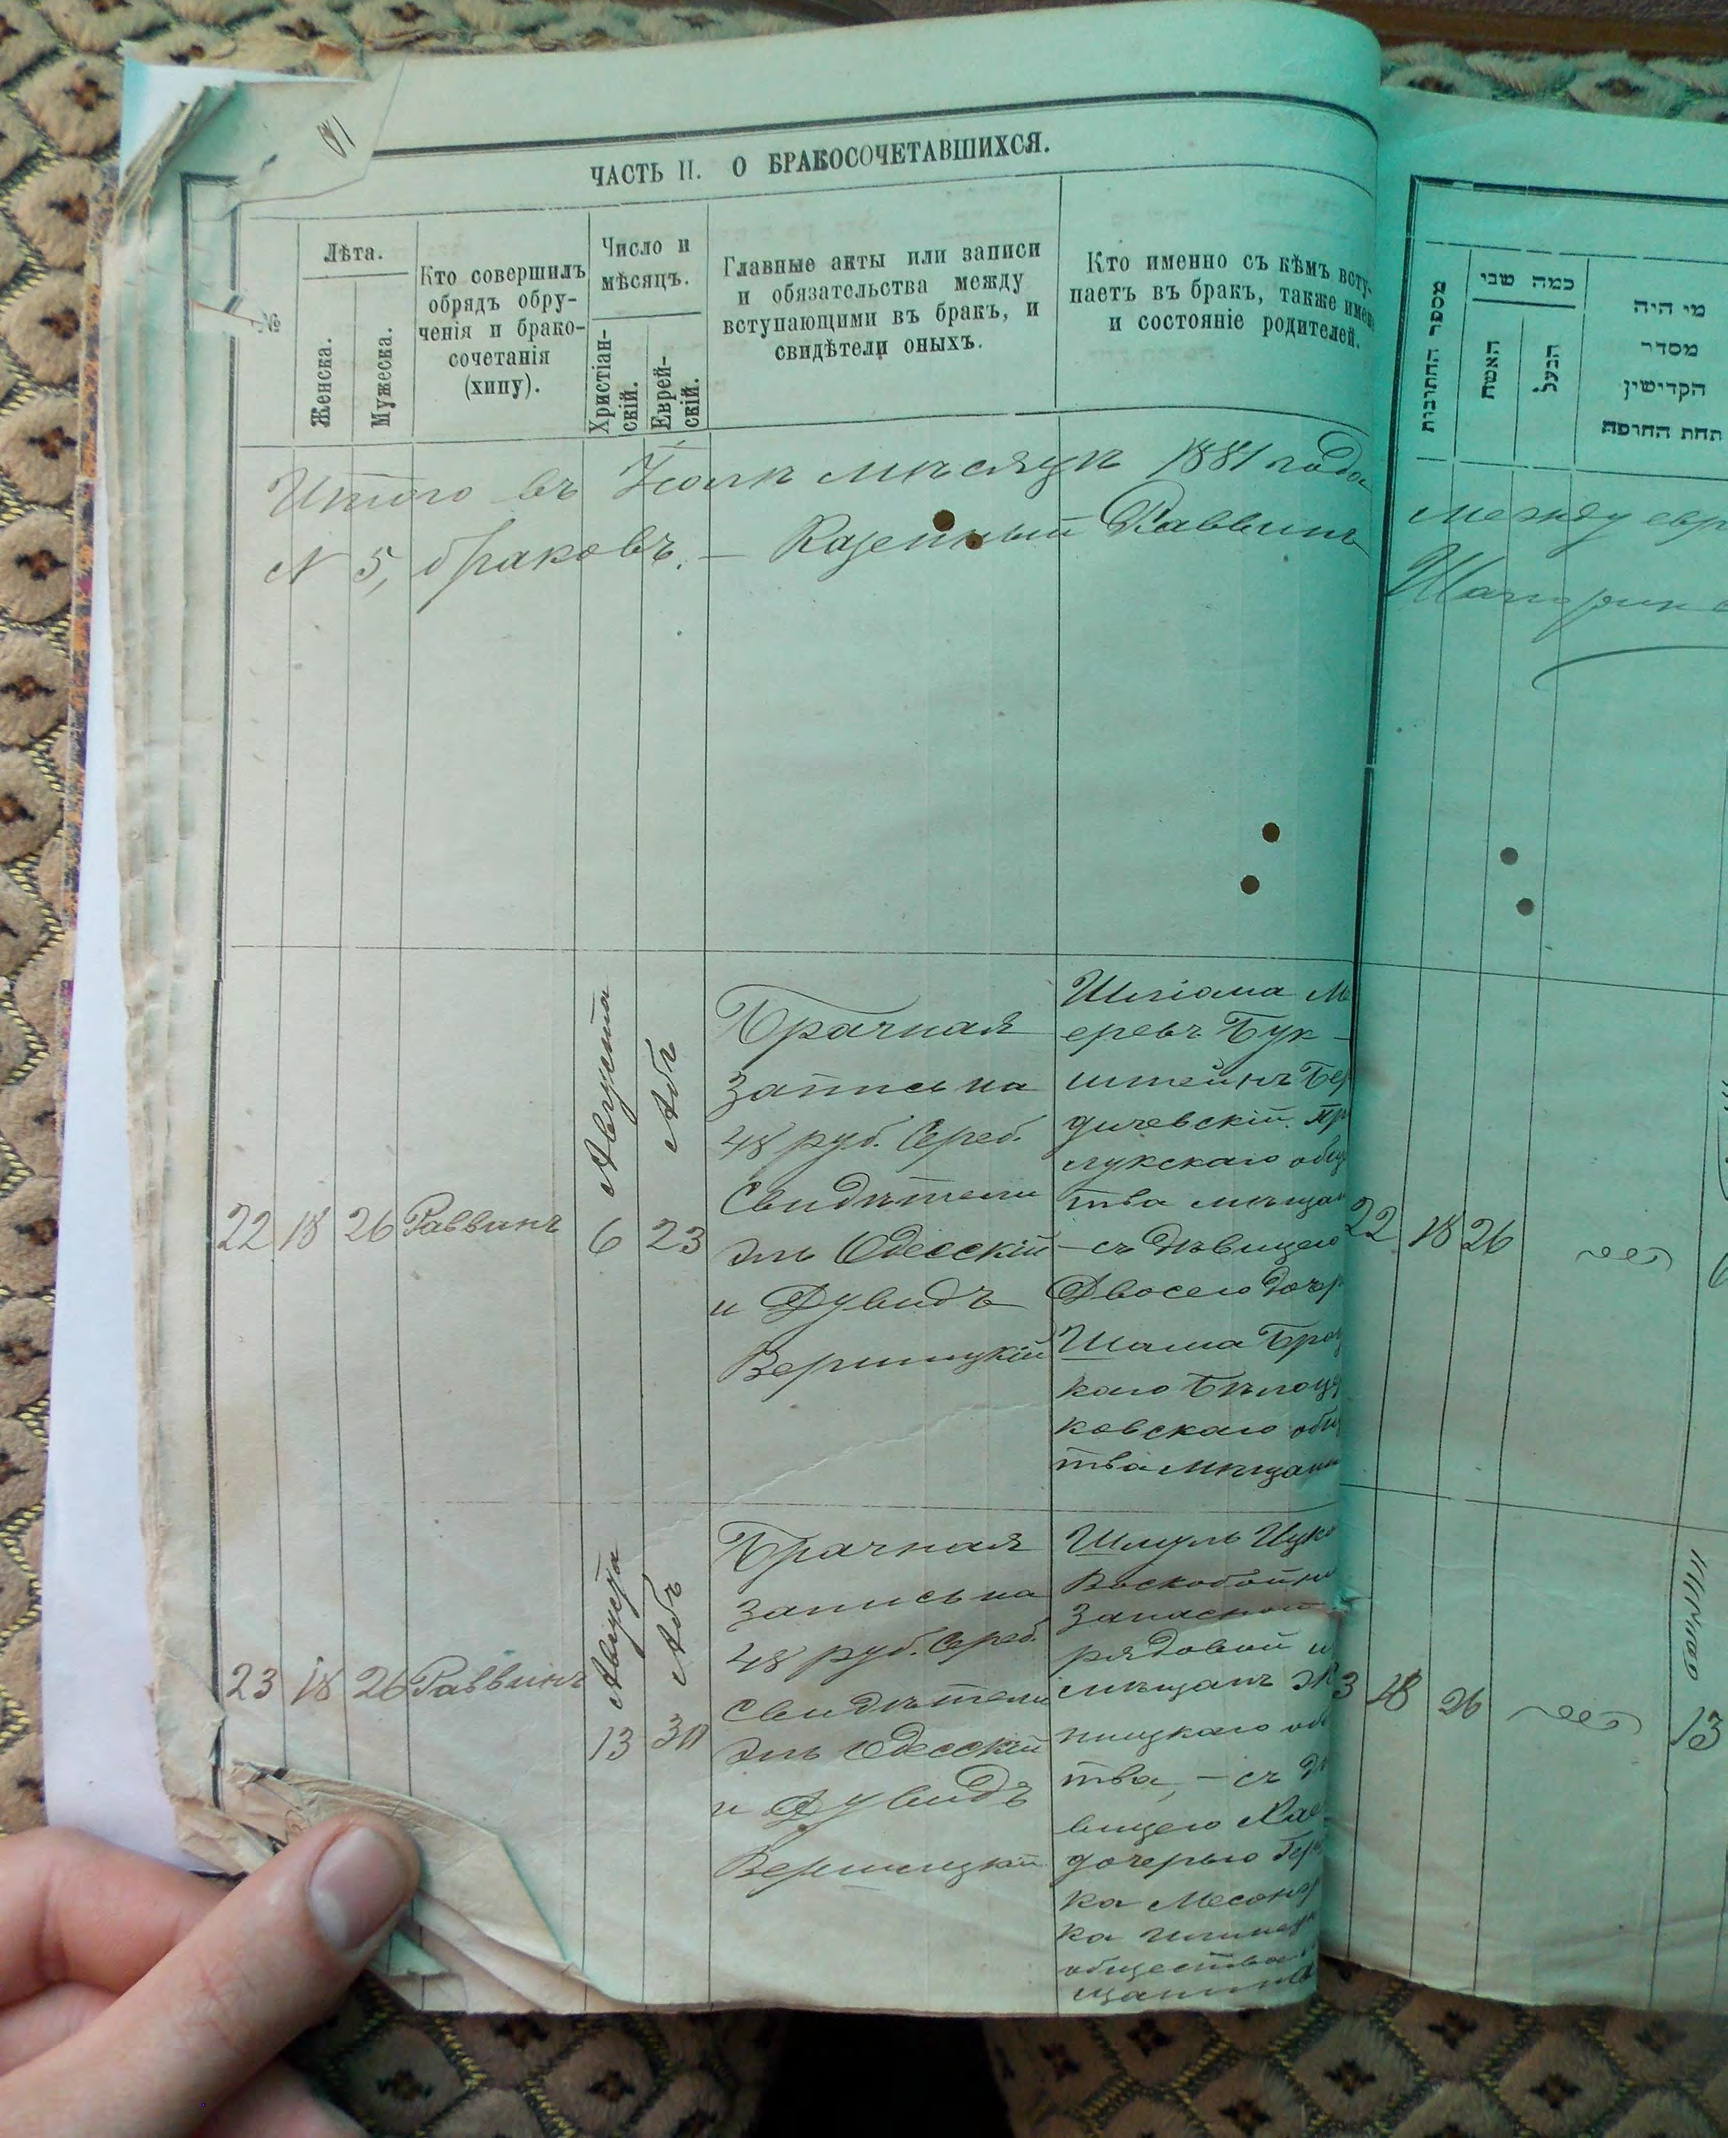 ЧАСТЬ II. О БРАКОСОЧЕТАВШИХСЯ.
№
Лѣта.
Женска.
Мужеска.
Кто совершилъ
обрядъ обру-
ченія и брако-
сочетанія
(хипу).
Число и
мѣсяцъ.
Христіан-
скій.
Еврей-
скій.
Главные акты или записи
и обязательства между
вступающими въ бракъ, и
свидѣтели оныхъ.
Кто именно съ кѣмъ всту-
паетъ въ бракъ, также имена
и состояніе родителей.
Итого въ мѣсяцѣ 1881 года
N 5, браковъ. — Казенный Раввинъ
22
18
26
Раввинъ
Августа
6
Абъ
23
Брачная
запись на
48 руб. Сереб.
Свидѣтели
Эль Одесскій
и Дувидъ
Шлiома М
еревъ Бук-
штейнъ Бер
дичевскій. Пр
лукскаго общ
тва мѣщан
— съ дѣвицею
Двосею дочер
Шама Брод
каго Бѣлоце
ковскаго общ
тва мѣщани
23
18
26
Раввинъ
Августа
13
Абъ
30
Брачная
запись на
48 руб. Сереб.
Свидѣтели
Эль Одесскій
и Дувидъ
Шмуль Ицко
Воскобойни
Запасной
рядовой и
мѣщанъ
ницкаго об
тва, — съ дѣ
вицею Хае
дочерью Гер
ка
общества
מספר החתונות
כמה שני
האשה
הבעל
מי היה
מסדר
הקדישין
תחת החופה
между евр
22
18
26
3
18
26
13